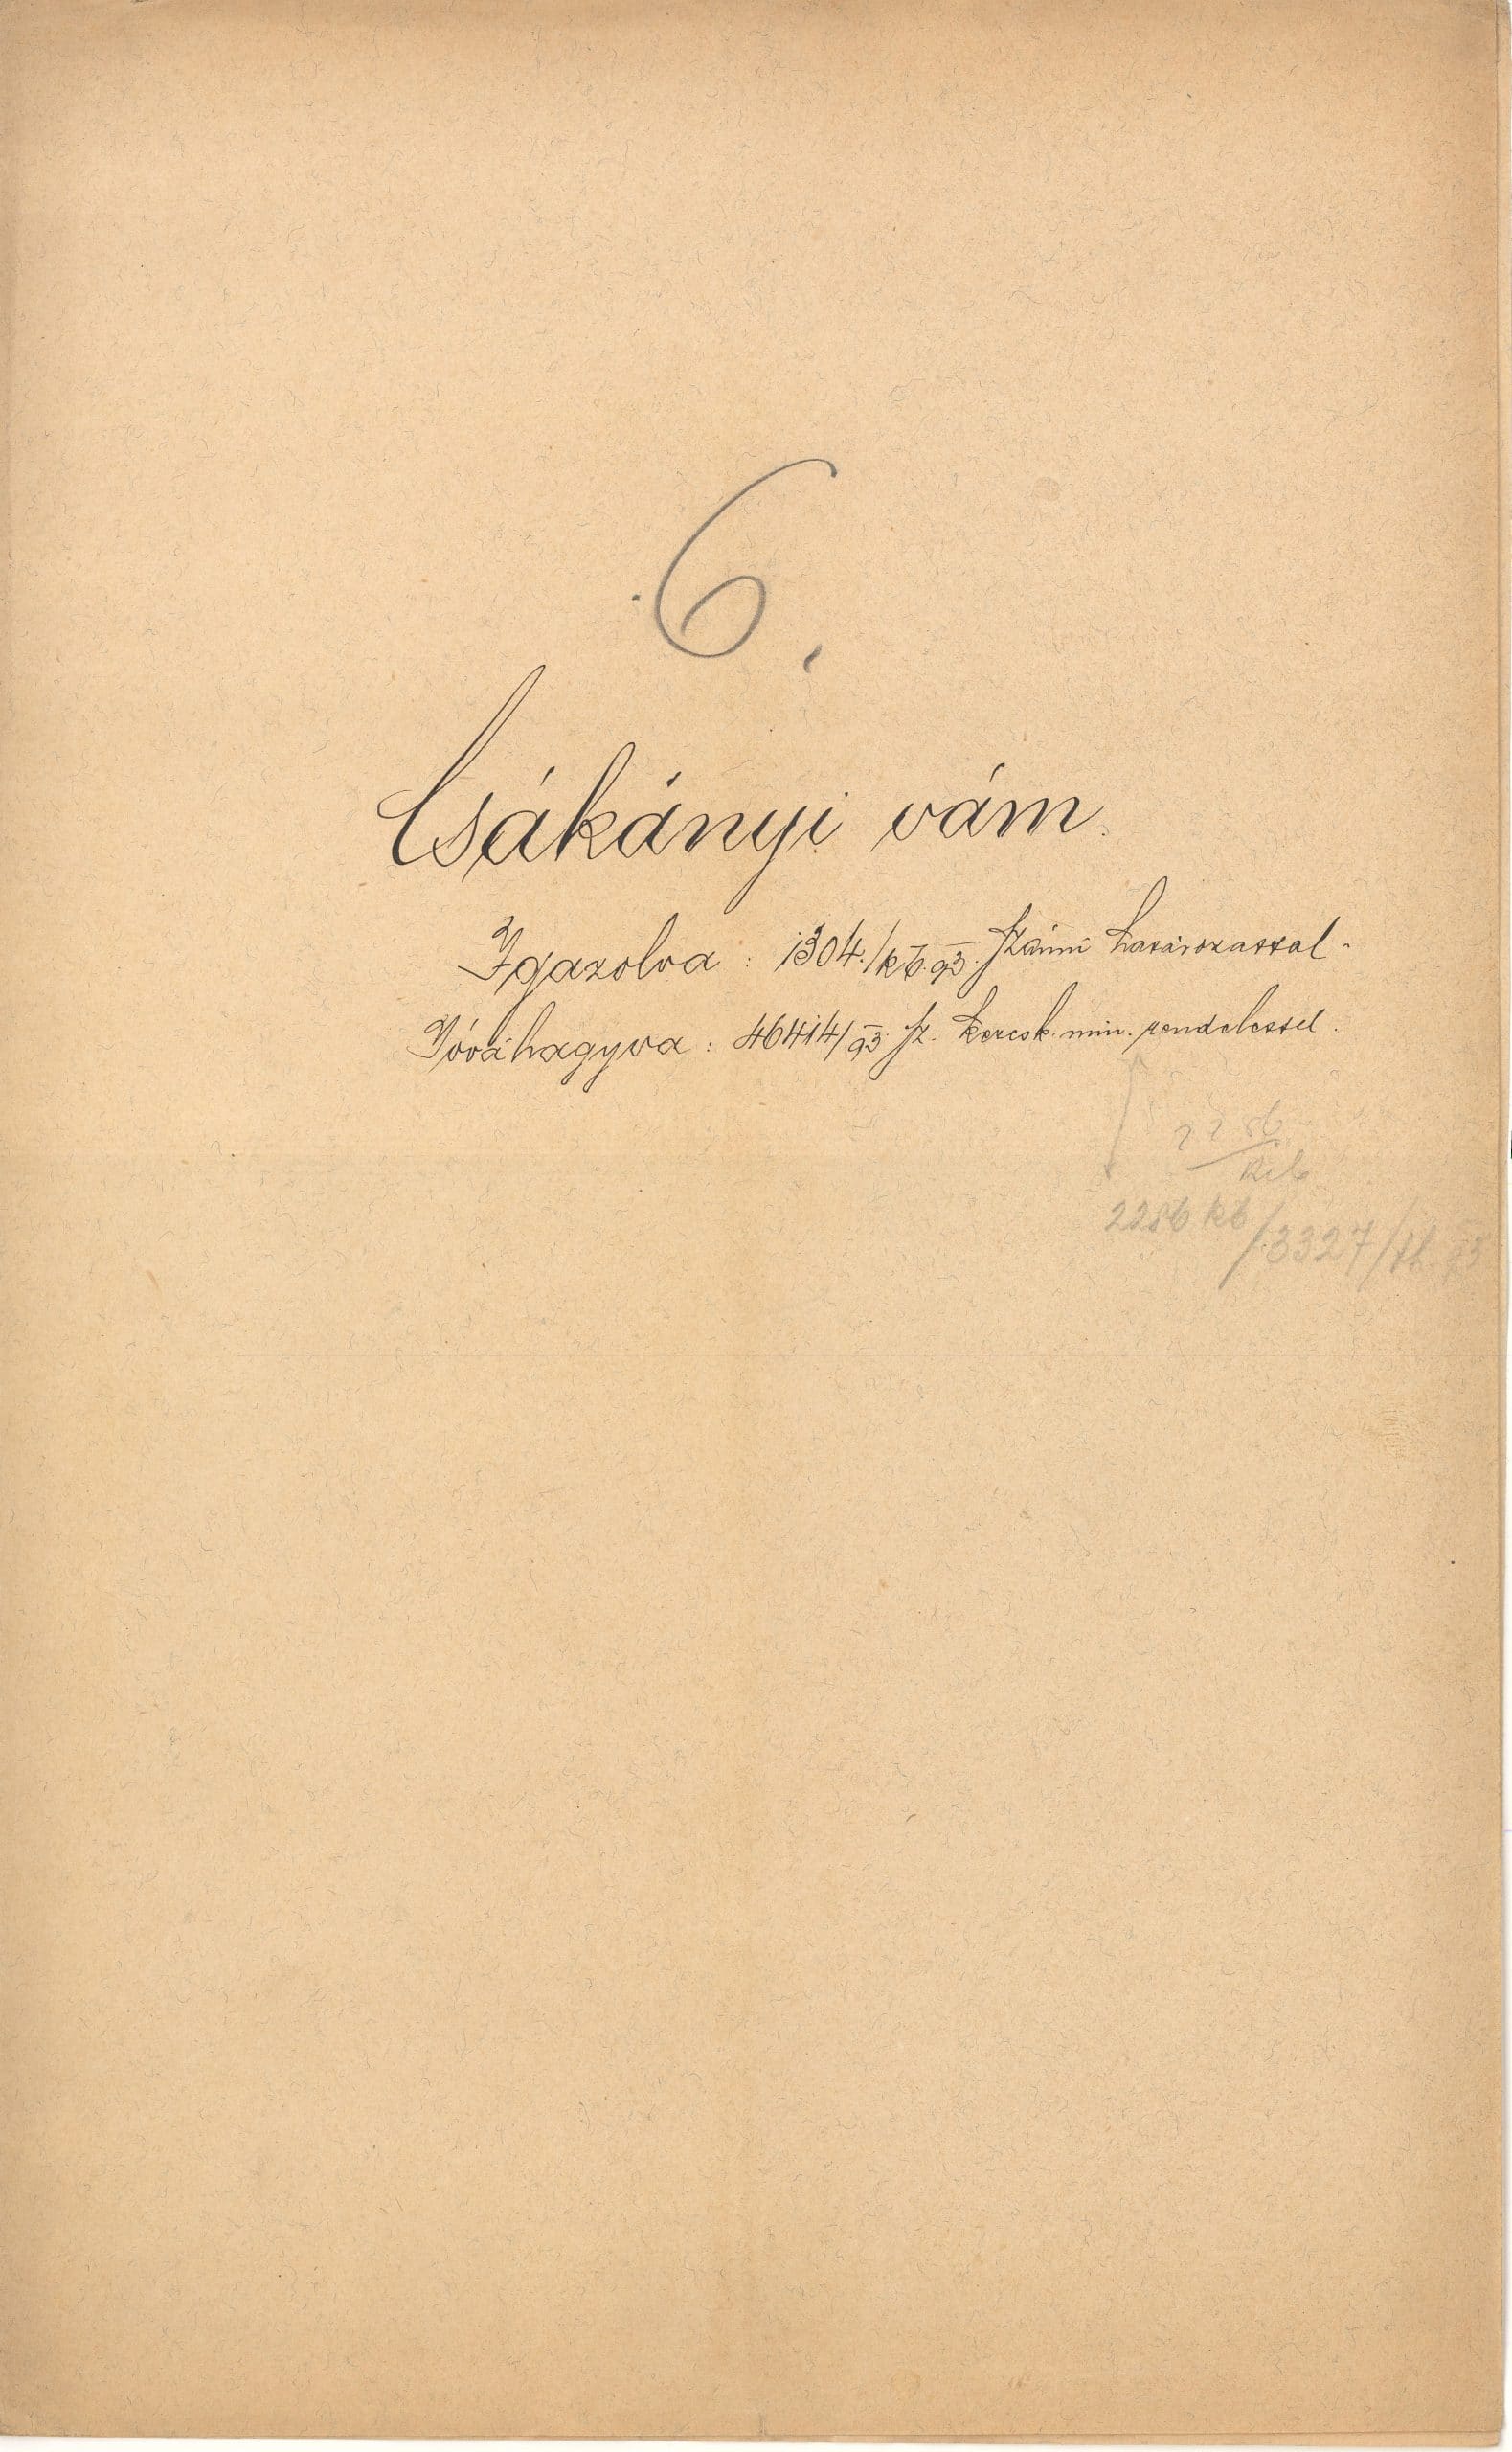 6.
Csákányi vám.
Igazolva: 1304./kb. 93. számú határozattal.
Jóváhagyva: 46414/93. sz. keresk. min. rendelettel.
2286
2286 kb/3327/